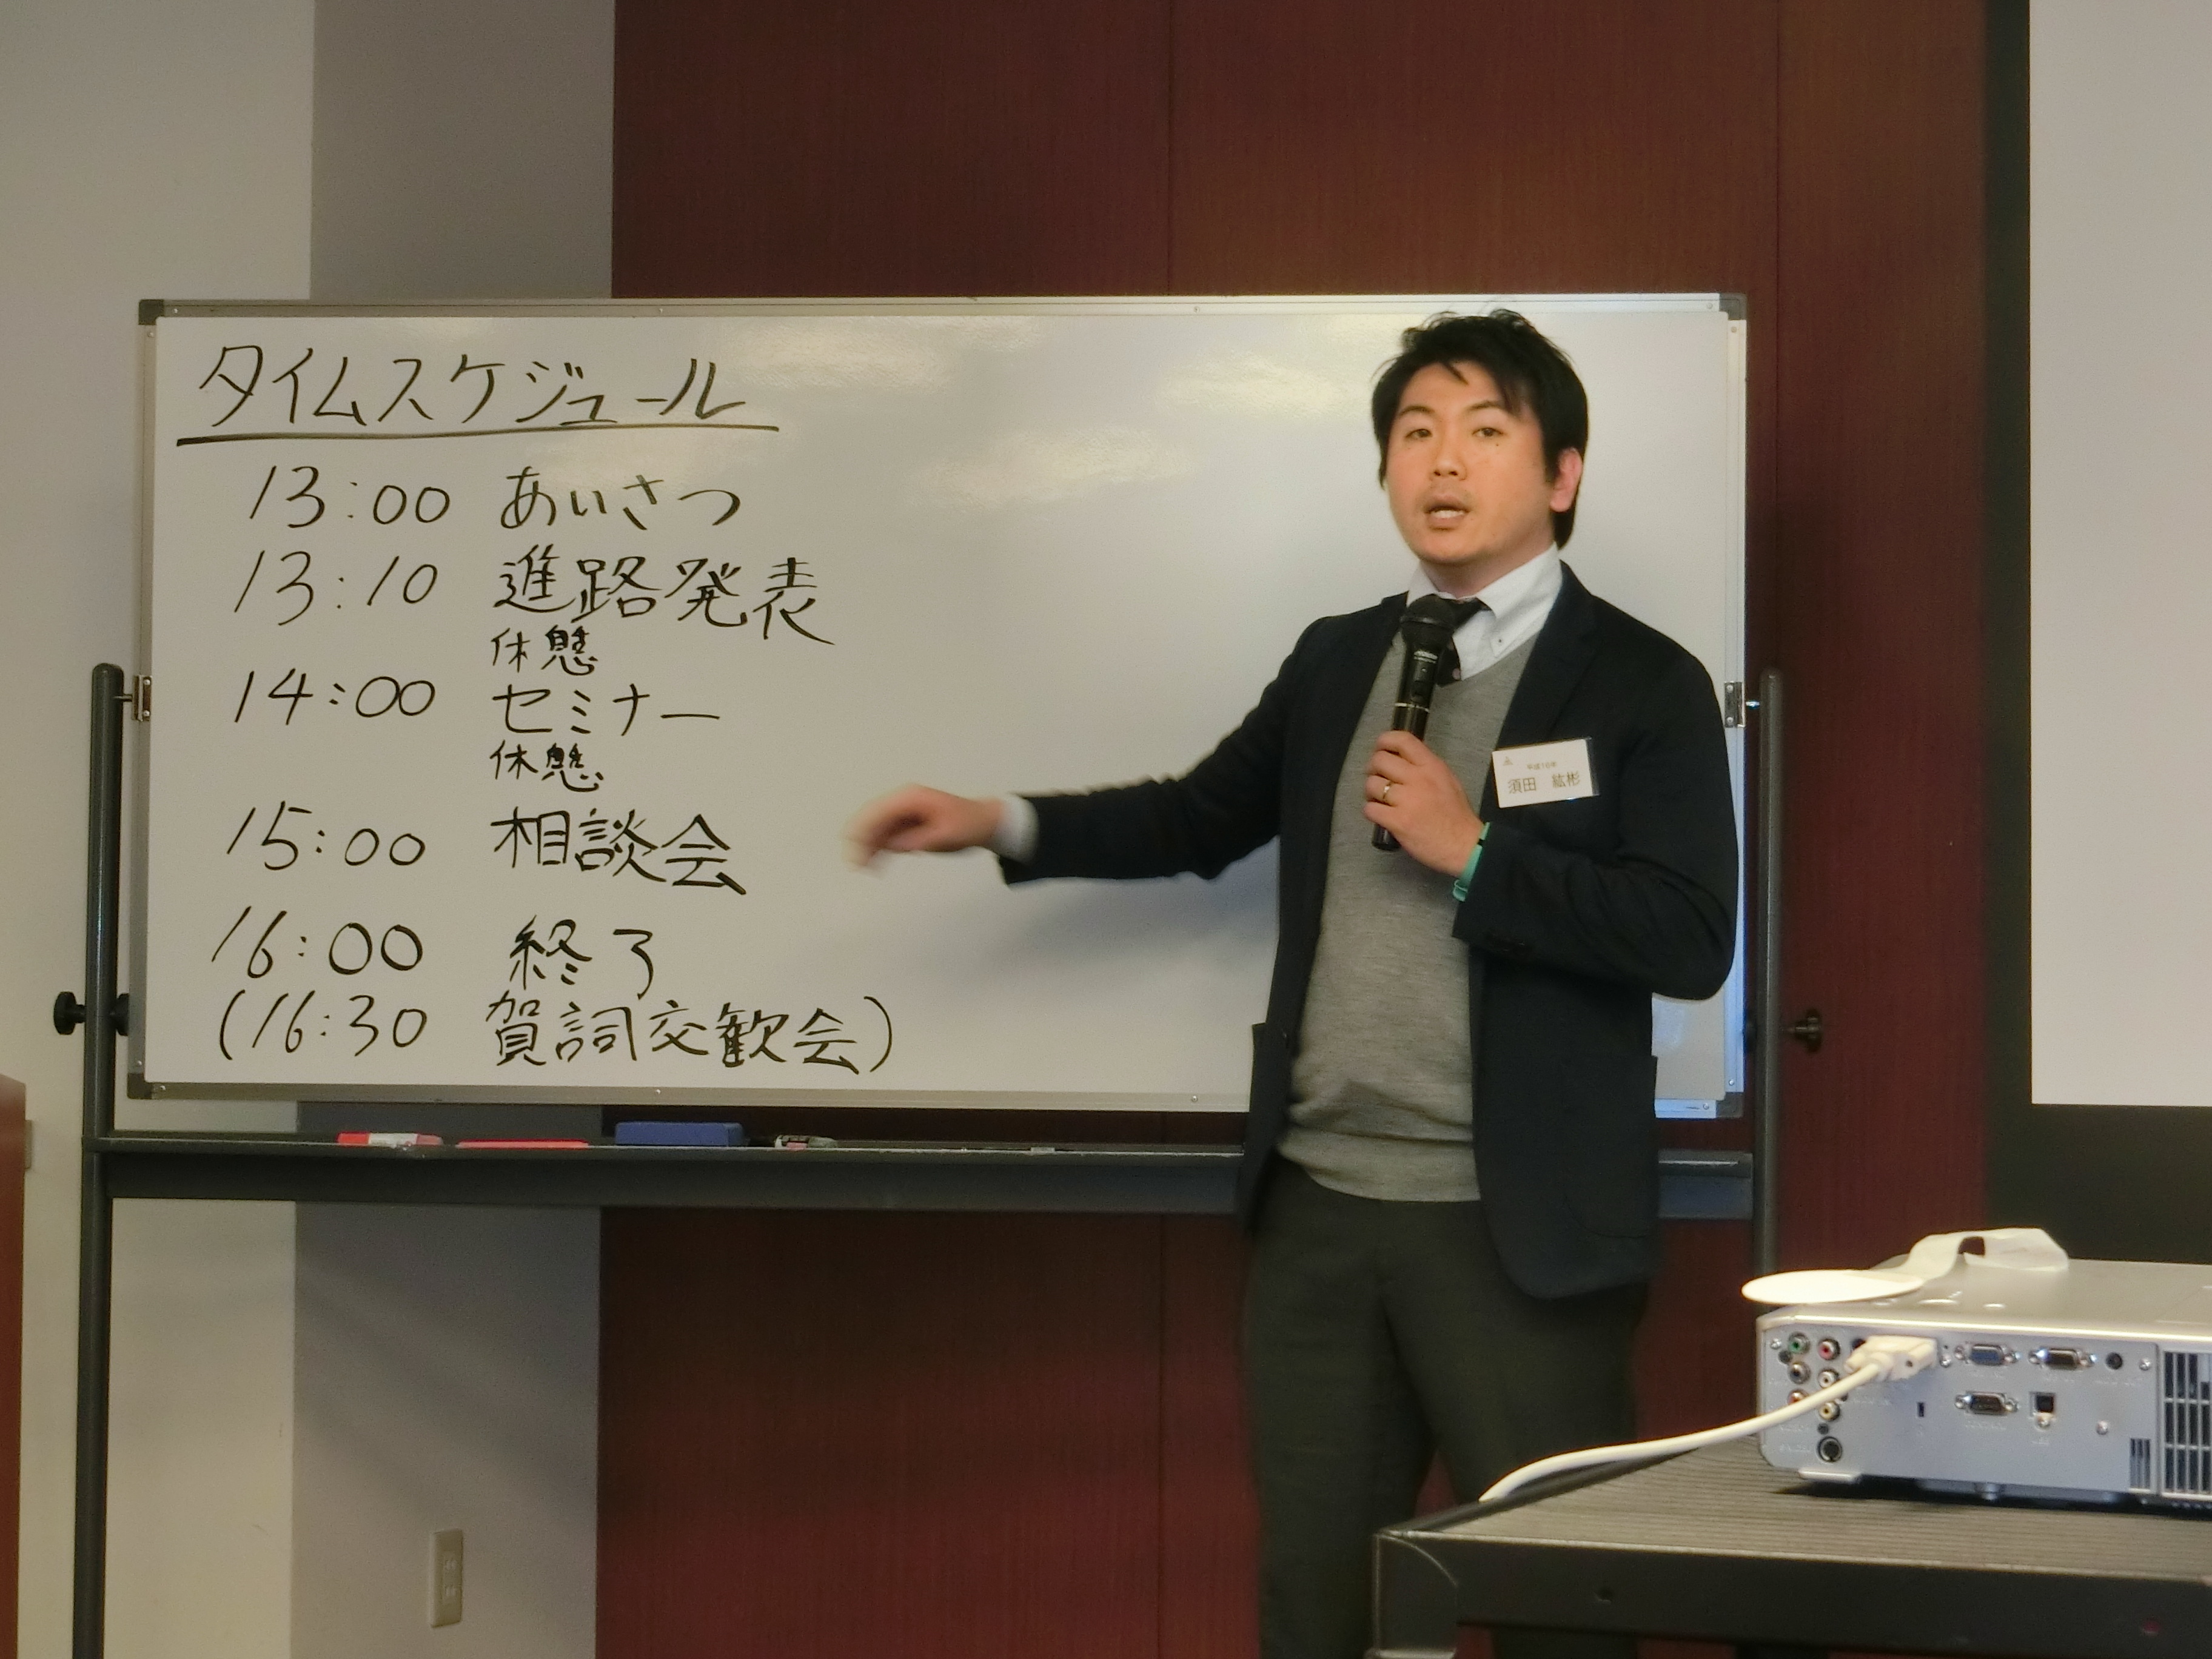 タイムスケジュール
13:00 あいさつ
13:10 進路発表
休憩
14:00 セミナー
休憩
15:00 相談会
16:00 終了
(16:30 賀詞交歓会)
平成16年
須田 紘彬